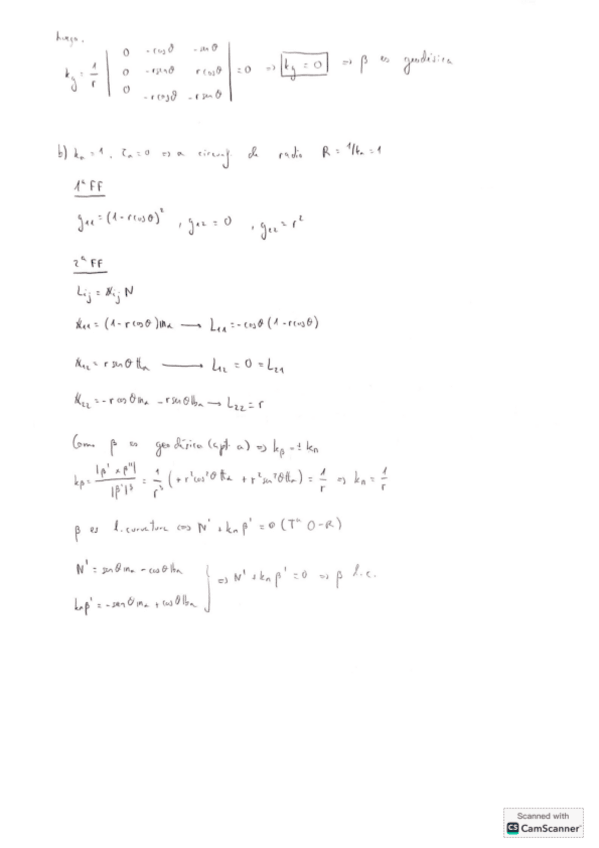 Luego,
k_g = 1/r | 0 -cosθ -senθ ; 0 -rsenθ rcosθ ; 0 -rcosθ -rsenθ | = 0 ⇒ k_g = 0 ⇒ β es geodésica
b) k_α = 1, τ_α = 0 ⇒ α circunf. de radio R = 1/k_α = 1
1ª FF
g_11 = (1 - r cosθ)², g_12 = 0, g_22 = r²
2ª FF
L_ij = x_ij N
x_11 = (1 - r cosθ) n_α → L_11 = -cosθ (1 - r cosθ)
x_12 = r senθ t_α → L_12 = 0 = L_21
x_22 = -r cosθ n_α - r senθ b_α → L_22 = r
Como β es geodésica (apt a) ⇒ k_β = ± k_n
k_β = |β' × β''| / |β'|³ = 1/r³ (+ r² cos²θ t_α + r² sen²θ t_α) = 1/r ⇒ k_n = 1/r
β es l. curvatura cos N' + k_n β' = 0 (Tª O-R)
N' = senθ n_α - cosθ b_α
⇒ N' + k_n β' = 0 ⇒ β l.c.
k_n β' = -senθ n_α + cosθ b_α
Scanned with
CS CamScanner